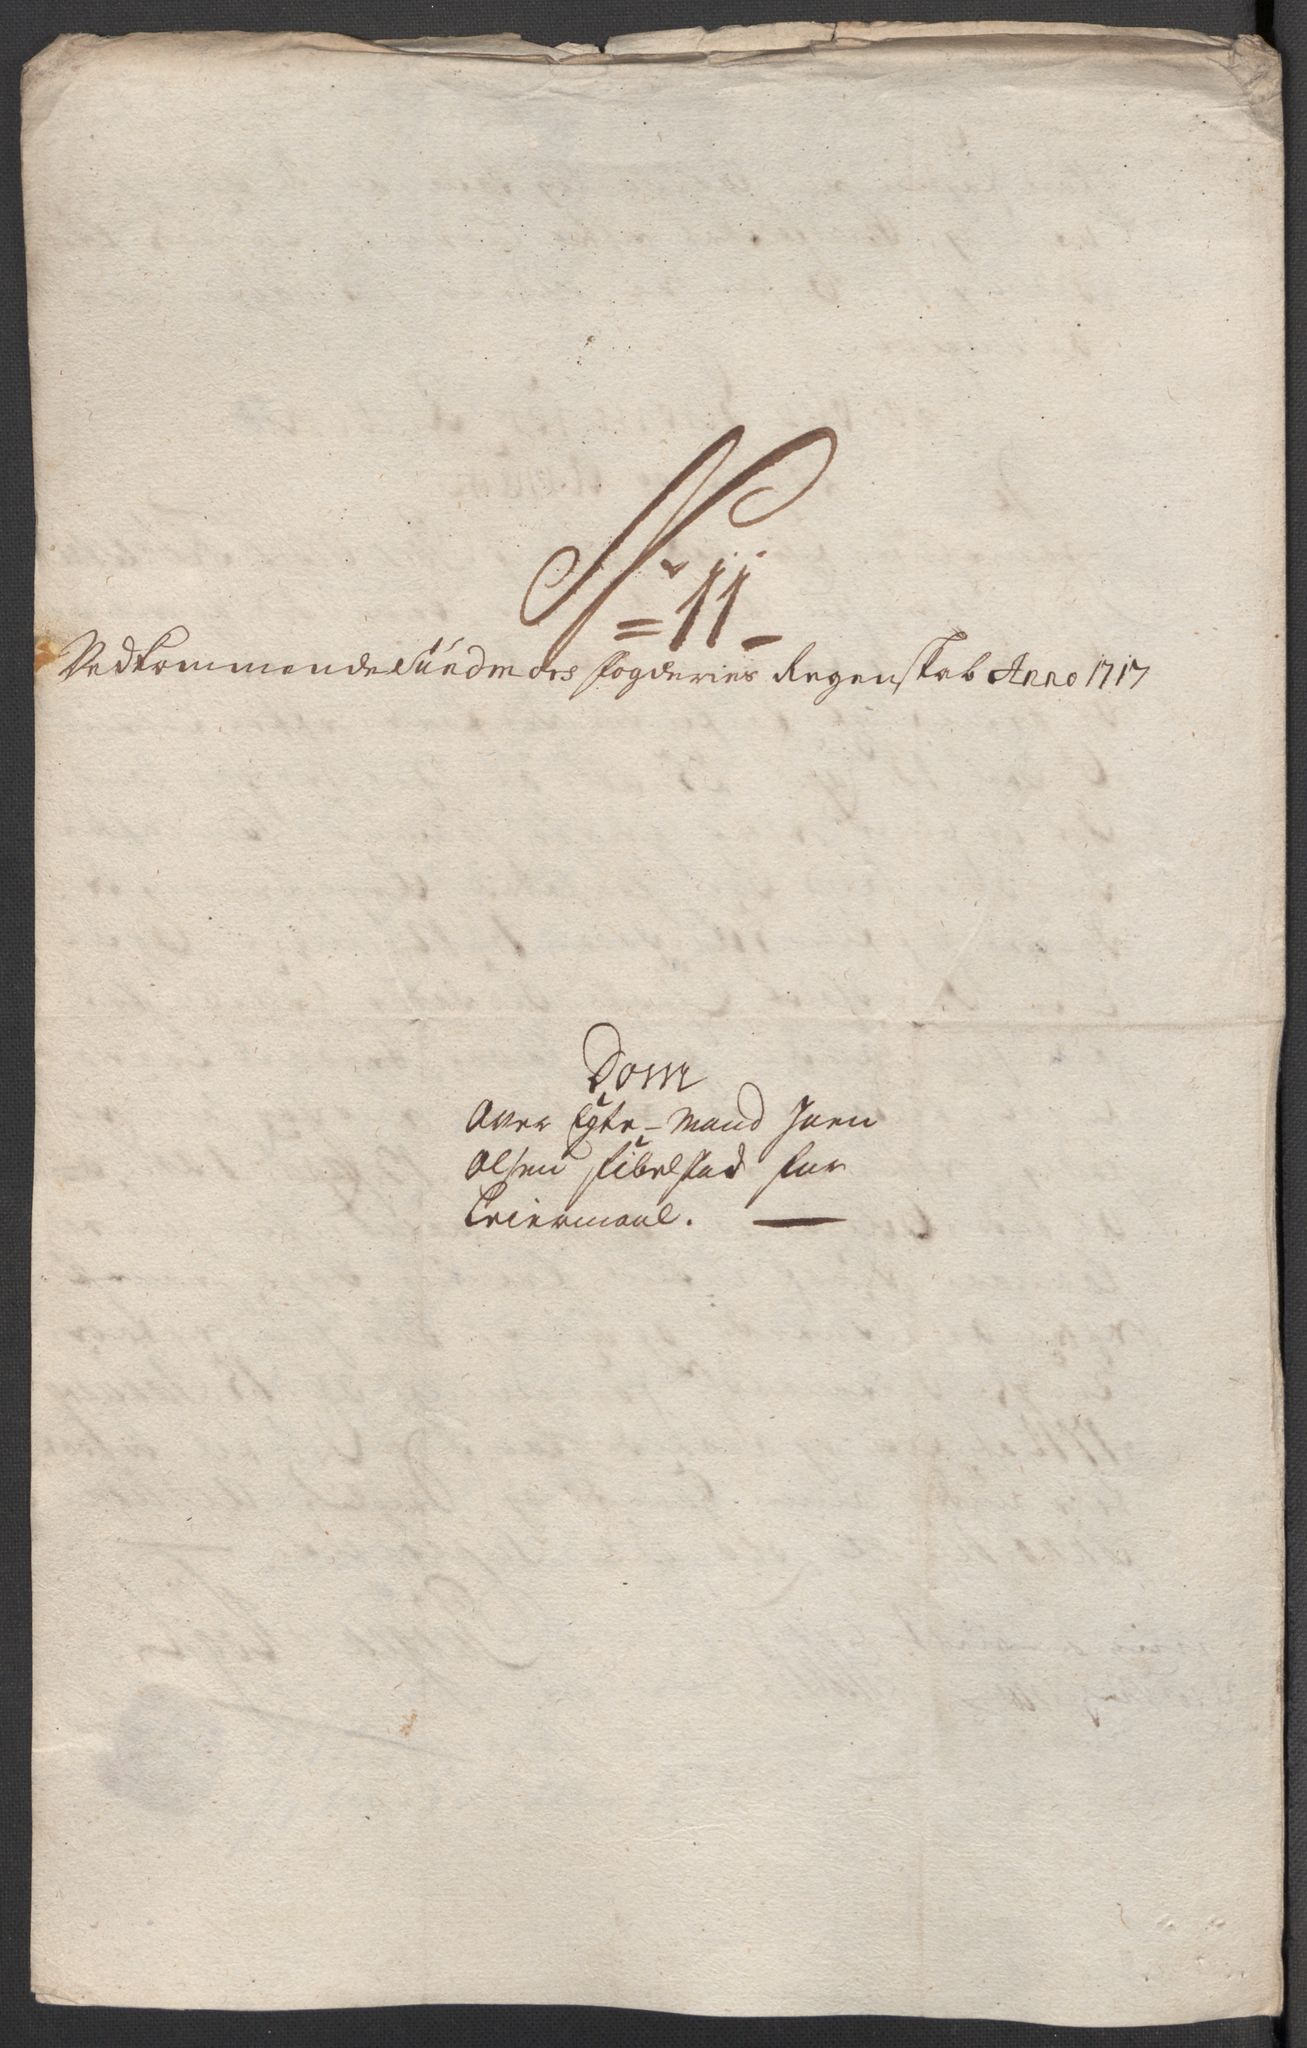 No 11
Vedkommende Sundmørs fogderies Regenskab Anno 1717
Dom
Over Egte-Mand Joen
Olsen fibelstad for
Leiermaal.